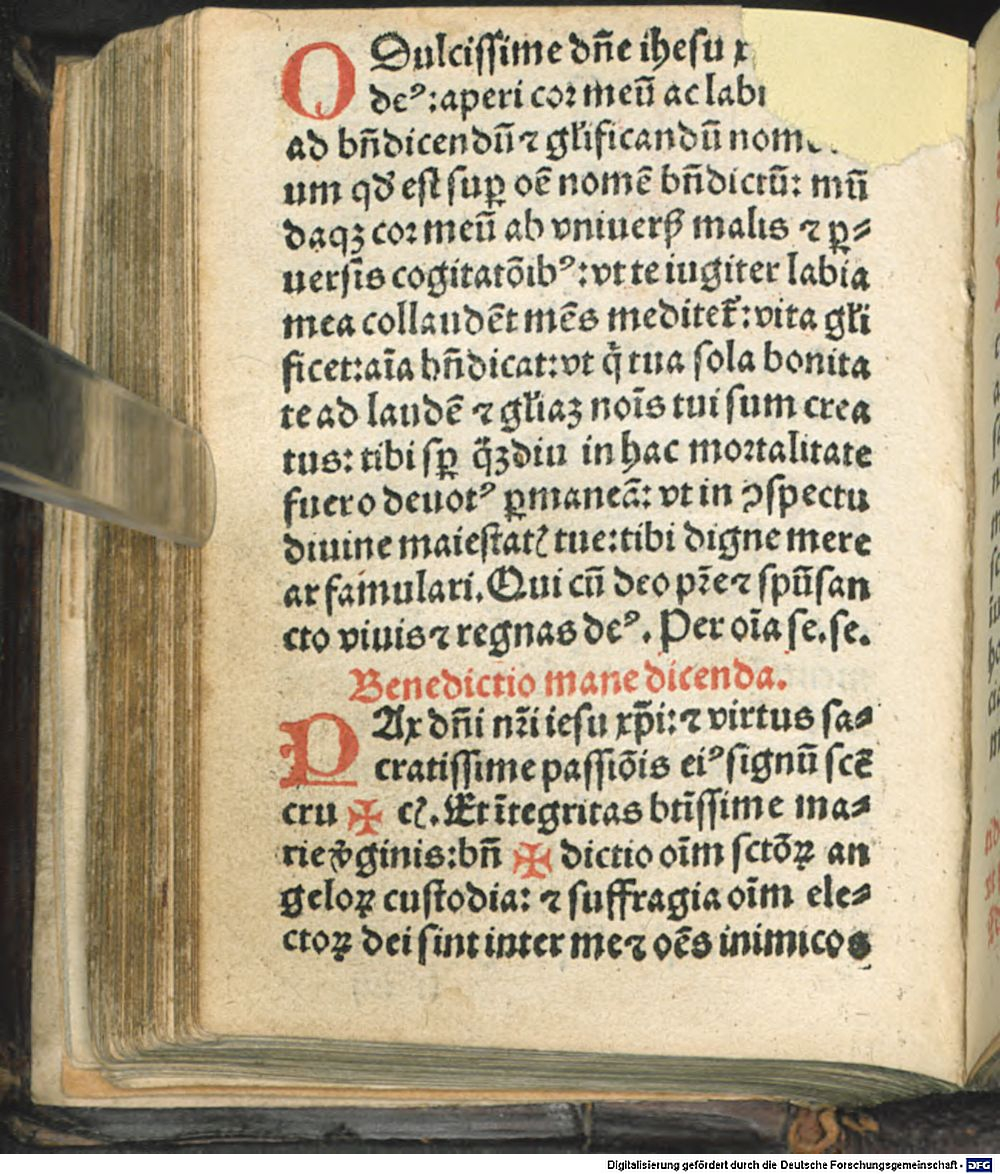 O Dulcissime dn̄e ihesu x
de⁹: aperi cor meū ac labi
ad bn̄dicendū ⁊ gl̄ificandū nom
um qđ est sup̱ oē nomē bn̄dictū: mū
daqꝫ cor meū ab vniuersꝭ malis ⁊ p̱⸗
uersis cogitatōib⁹: vt te iugiter labia
mea collaudēt mēs meditet᷑: vita gl̄i
ficet: aīa bn̄dicat: vt q̄ tua sola bonita
te ad laudē ⁊ gl̄iaꝫ noīs tui sum crea
tus: tibi sp̱ q̄ꝫdiu in hac mortalitate
fuero deuot⁹ p̱maneā: vt in ꝯspectu
diuine maiestatꝭ tue: tibi digne mere
ar famulari. Qui cū deo pr̄e ⁊ spū san
cto viuis ⁊ regnas de⁹. Per oīa se. se.
Benedictio mane dicenda.
PAx dn̄i nr̄i iesu xp̄i: ⁊ virtus sa⸗
cratissime passiōis ei⁹ signū scē
cru ✠ cꝭ. Et ītegritas btīssime ma⸗
rie v̄ginis: bn̄ ✠ dictio oīm sctōꝝ an
geloꝝ custodia: ⁊ suffragia oīm ele⸗
ctoꝝ dei sint inter me ⁊ oēs inimicos
Digitalisierung gefördert durch die Deutsche Forschungsgemeinschaft - DFG